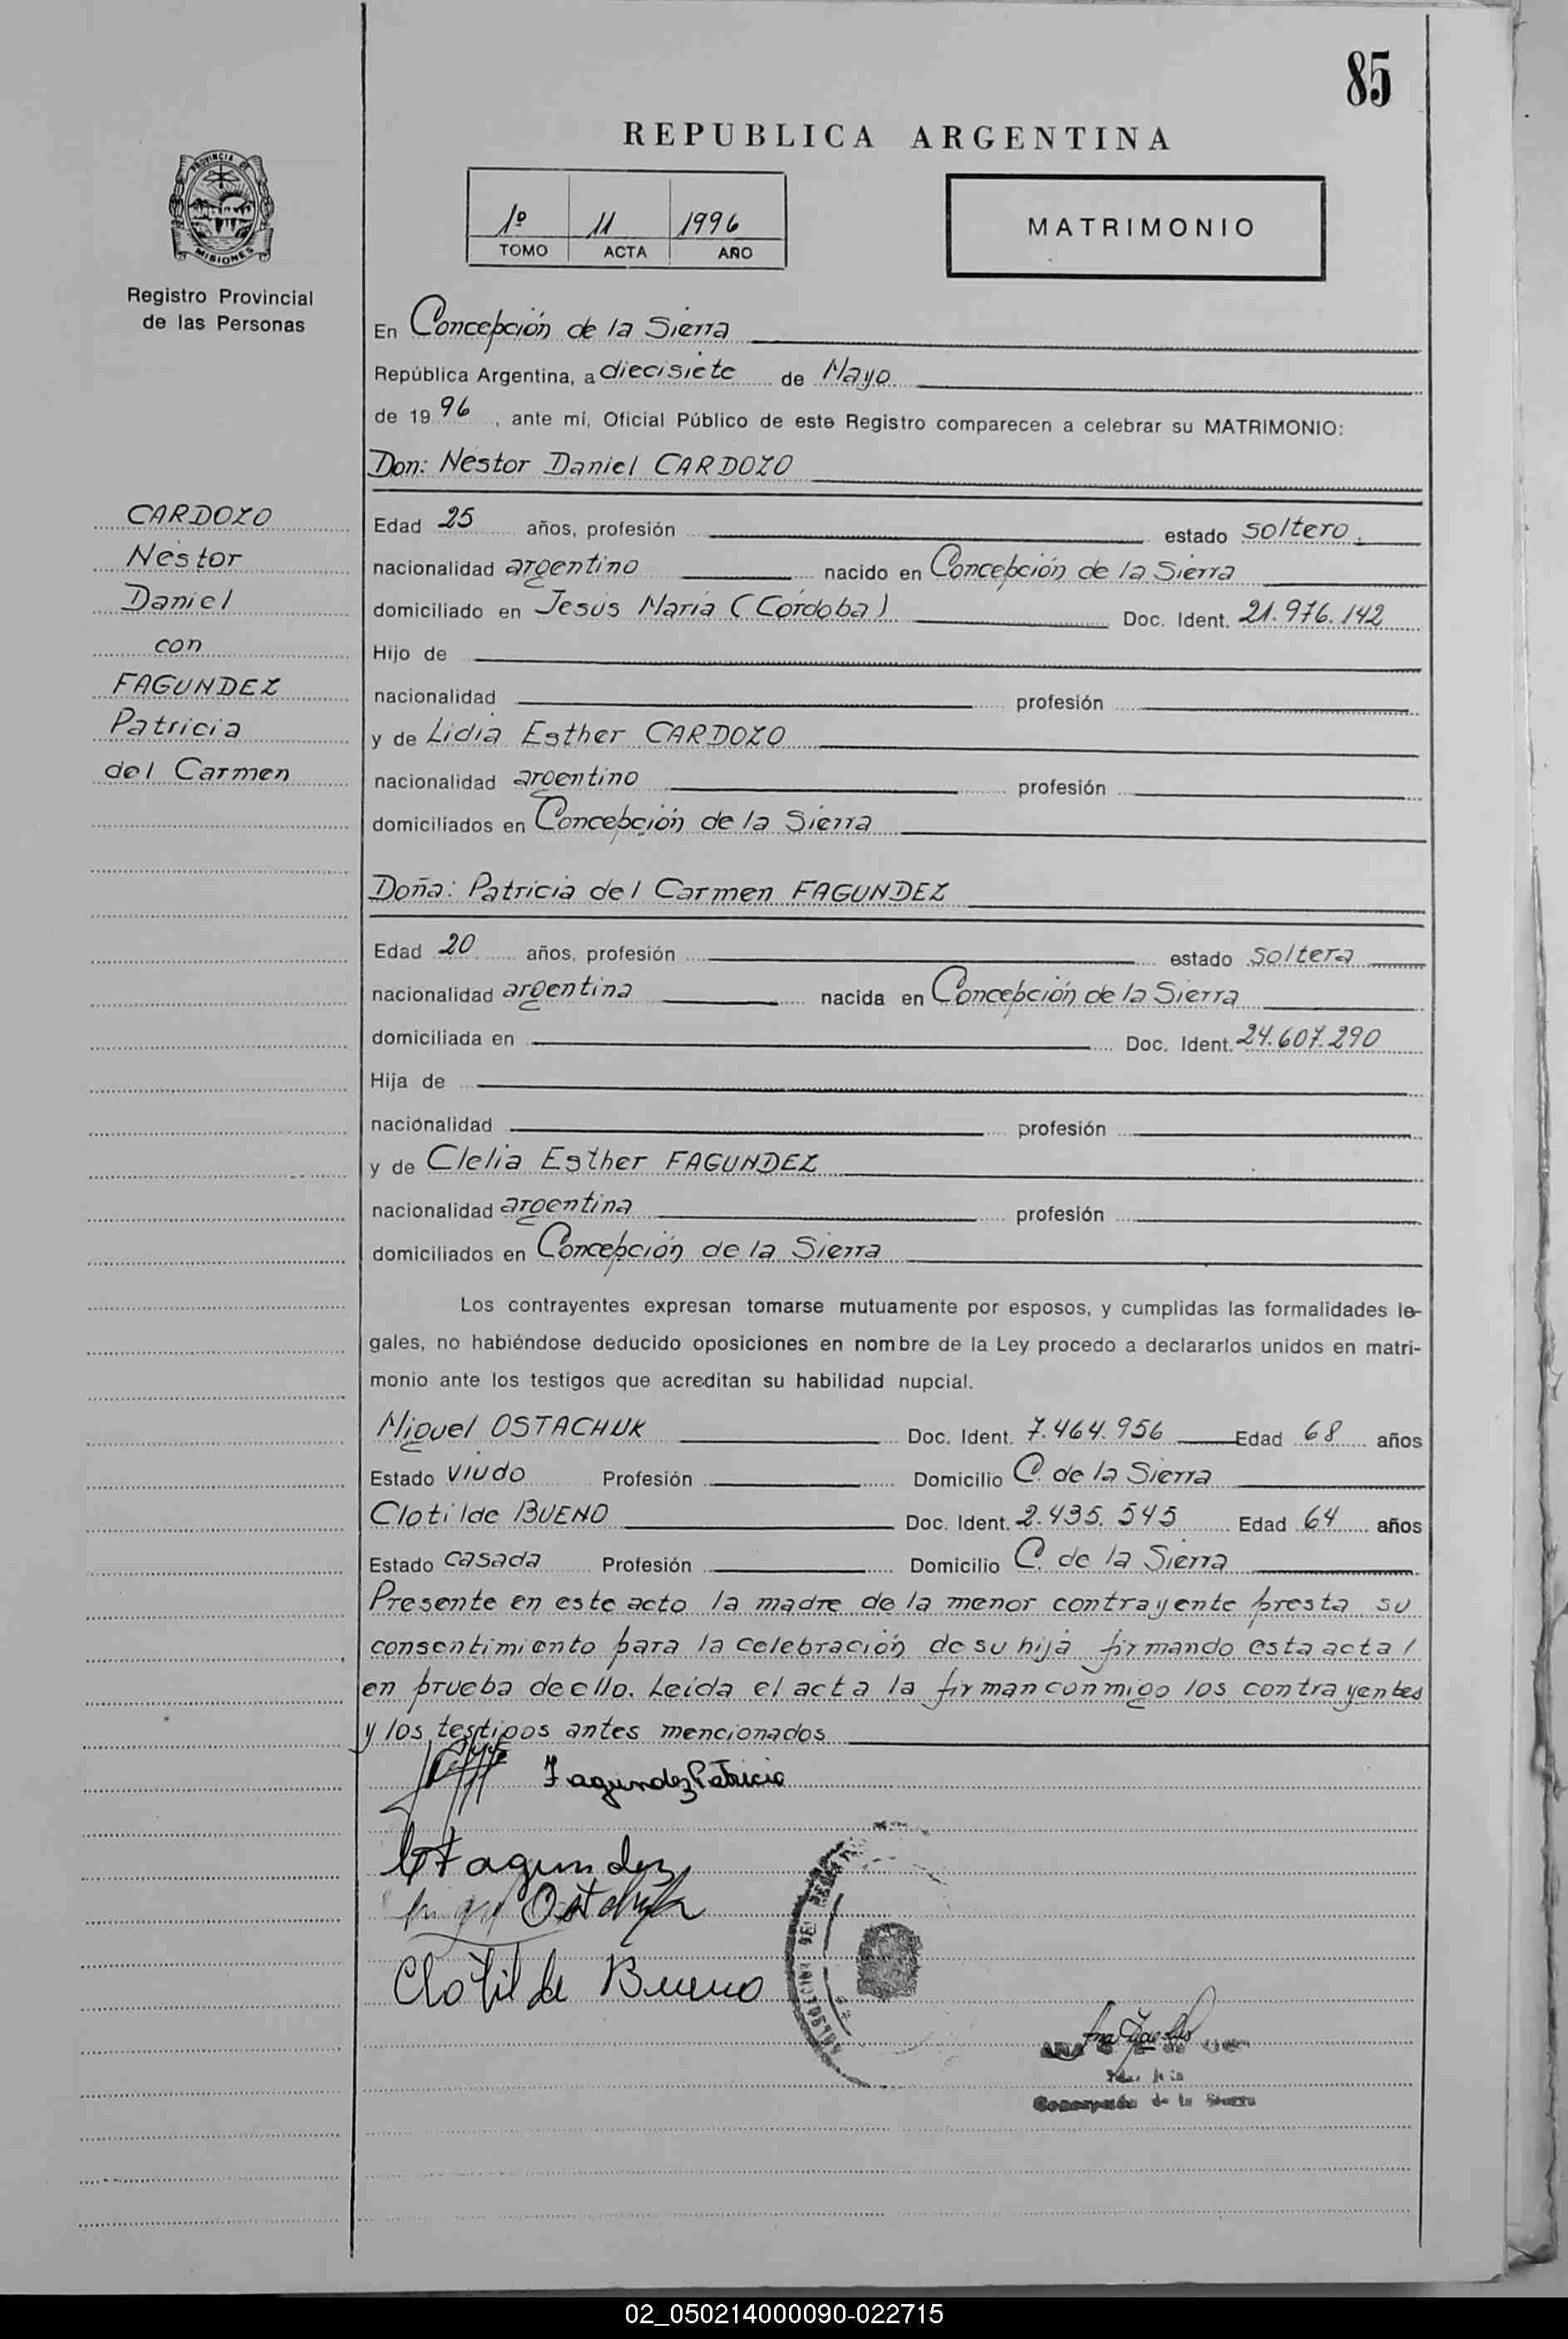 85
REPUBLICA ARGENTINA
1º 11 1996
TOMO ACTA AÑO
MATRIMONIO
PROVINCIA DE
MISIONES
Registro Provincial
de las Personas
CARDOZO
Néstor
Daniel
con
FAGUNDEZ
Patricia
del Carmen
En Concepción de la Sierra
República Argentina, a diecisiete de Mayo
de 1996, ante mí, Oficial Público de este Registro comparecen a celebrar su MATRIMONIO:
Don: Néstor Daniel CARDOZO
Edad 25 años, profesión estado soltero.
nacionalidad argentino nacido en Concepción de la Sierra
domiciliado en Jesús María (Córdoba) Doc. Ident. 21.976.142
Hijo de
nacionalidad profesión
y de Lidia Esther CARDOZO
nacionalidad argentino profesión
domiciliados en Concepción de la Sierra
Doña: Patricia del Carmen FAGUNDEZ
Edad 20 años, profesión estado soltera
nacionalidad argentina nacida en Concepción de la Sierra
domiciliada en Doc. Ident. 24.607.290
Hija de
nacionalidad profesión
y de Clelia Esther FAGUNDEZ
nacionalidad argentina profesión
domiciliados en Concepción de la Sierra
Los contrayentes expresan tomarse mutuamente por esposos, y cumplidas las formalidades le-
gales, no habiéndose deducido oposiciones en nombre de la Ley procedo a declararlos unidos en matri-
monio ante los testigos que acreditan su habilidad nupcial.
Miguel OSTACHUK Doc. Ident. 7.464.956 Edad 68 años
Estado viudo Profesión Domicilio C. de la Sierra
Clotilde BUENO Doc. Ident. 2.435.545 Edad 64 años
Estado casada Profesión Domicilio C. de la Sierra
Presente en este acto la madre de la menor contrayente presta su
consentimiento para la celebración de su hija firmando esta acta /
en prueba de ello. Leída el acta la firman conmigo los contrayentes
y los testigos antes mencionados
Fagundez Patricia
Fagundez
Clotilde Bueno
Concepción de la Sierra
02_050214000090-022715